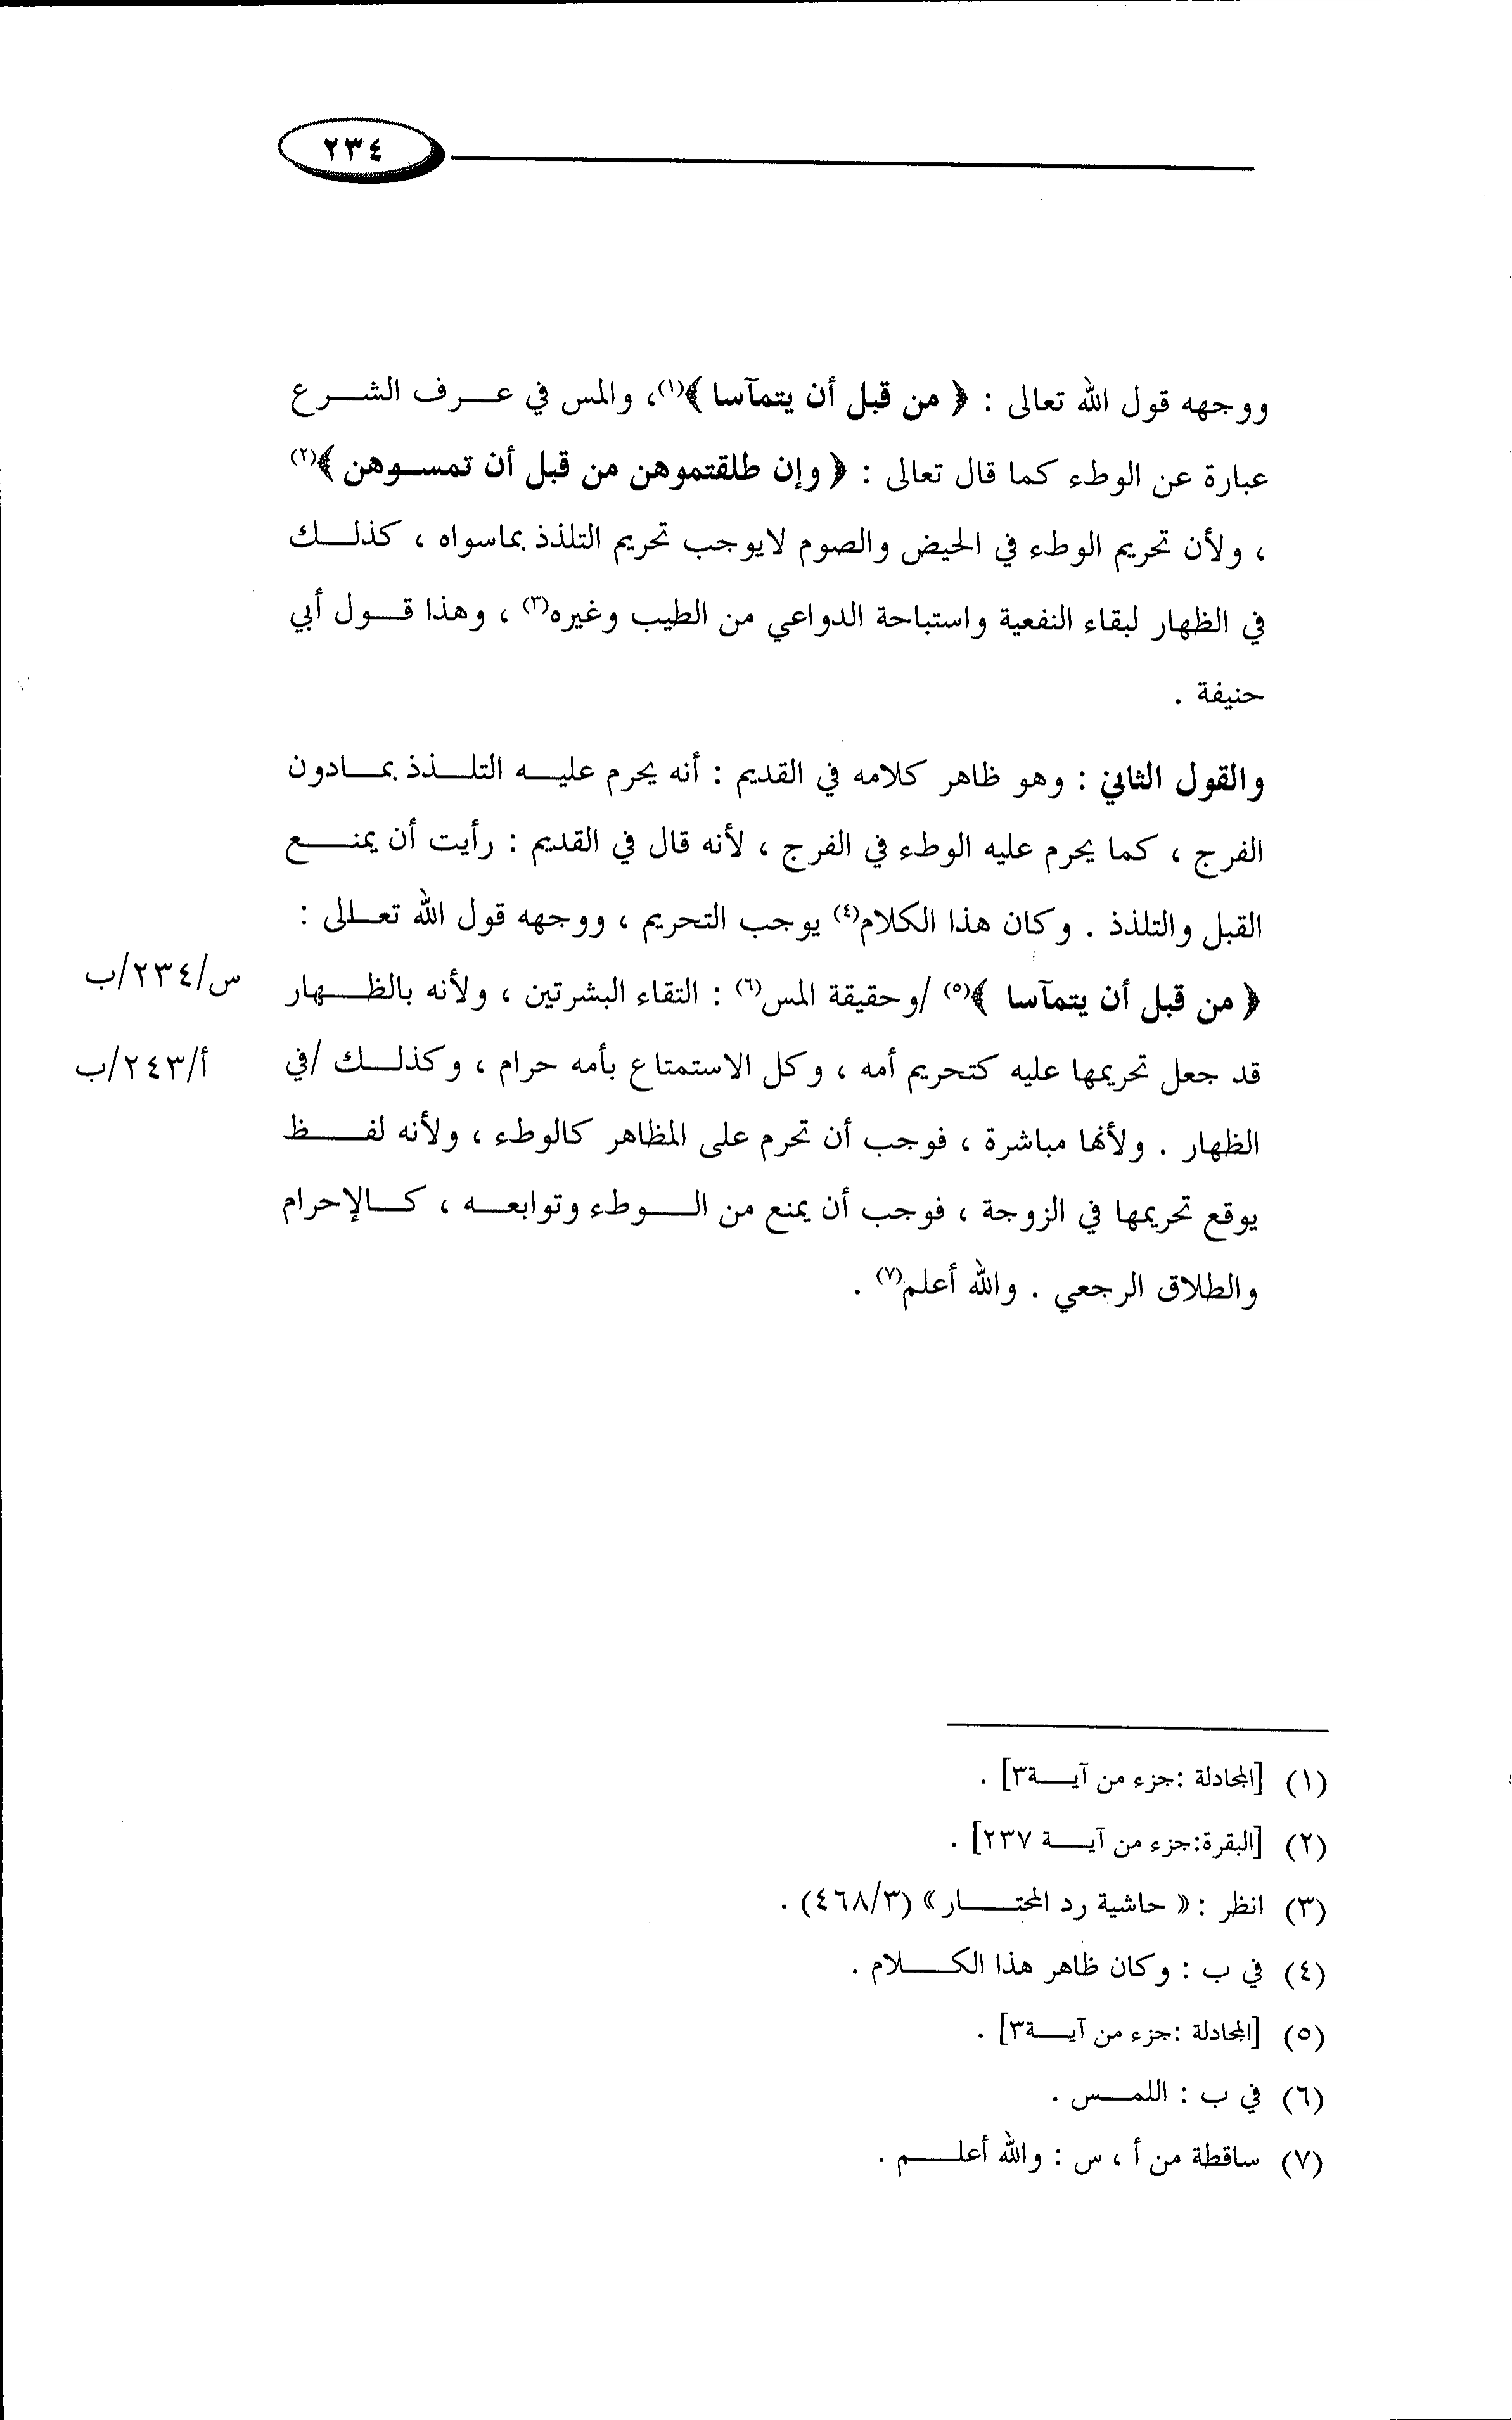 ٢٣٤
ووجهه قول الله تعالى : ﴿ من قبل أن يتمآسا ﴾(١)، والمس في عرف الشرع
عبارة عن الوطء كما قال تعالى : ﴿ وإن طلقتموهن من قبل أن تمسوهن ﴾(٢)
، ولأن تحريم الوطء في الحيض والصوم لايوجب تحريم التلذذ بماسواه ، كذلك
في الظهار لبقاء النفعية واستباحة الدواعي من الطيب وغيره(٣) ، وهذا قول أبي
حنيفة .
والقول الثاني : وهو ظاهر كلامه في القديم : أنه يحرم عليه التلذذ بمادون
الفرج ، كما يحرم عليه الوطء في الفرج ، لأنه قال في القديم : رأيت أن يمنع
القبل والتلذذ . وكان هذا الكلام(٤) يوجب التحريم ، ووجهه قول الله تعالى :
﴿ من قبل أن يتمآسا ﴾(٥) /وحقيقة المس(٦) : التقاء البشرتين ، ولأنه بالظهار
س/٢٣٤/ب
قد جعل تحريمها عليه كتحريم أمه ، وكل الاستمتاع بأمه حرام ، وكذلك /في
أ/٢٤٣/ب
الظهار . ولأنها مباشرة ، فوجب أن تحرم على المظاهر كالوطء ، ولأنه لفظ
يوقع تحريمها في الزوجة ، فوجب أن يمنع من الوطء وتوابعه ، كالإحرام
والطلاق الرجعي . والله أعلم(٧) .
(١) [المجادلة :جزء من آية٣] .
(٢) [البقرة:جزء من آية ٢٣٧] .
(٣) انظر : « حاشية رد المحتار » (٤٦٨/٣) .
(٤) في ب : وكان ظاهر هذا الكلام .
(٥) [المجادلة :جزء من آية٣] .
(٦) في ب : اللمس .
(٧) ساقطة من أ ، س : والله أعلم .